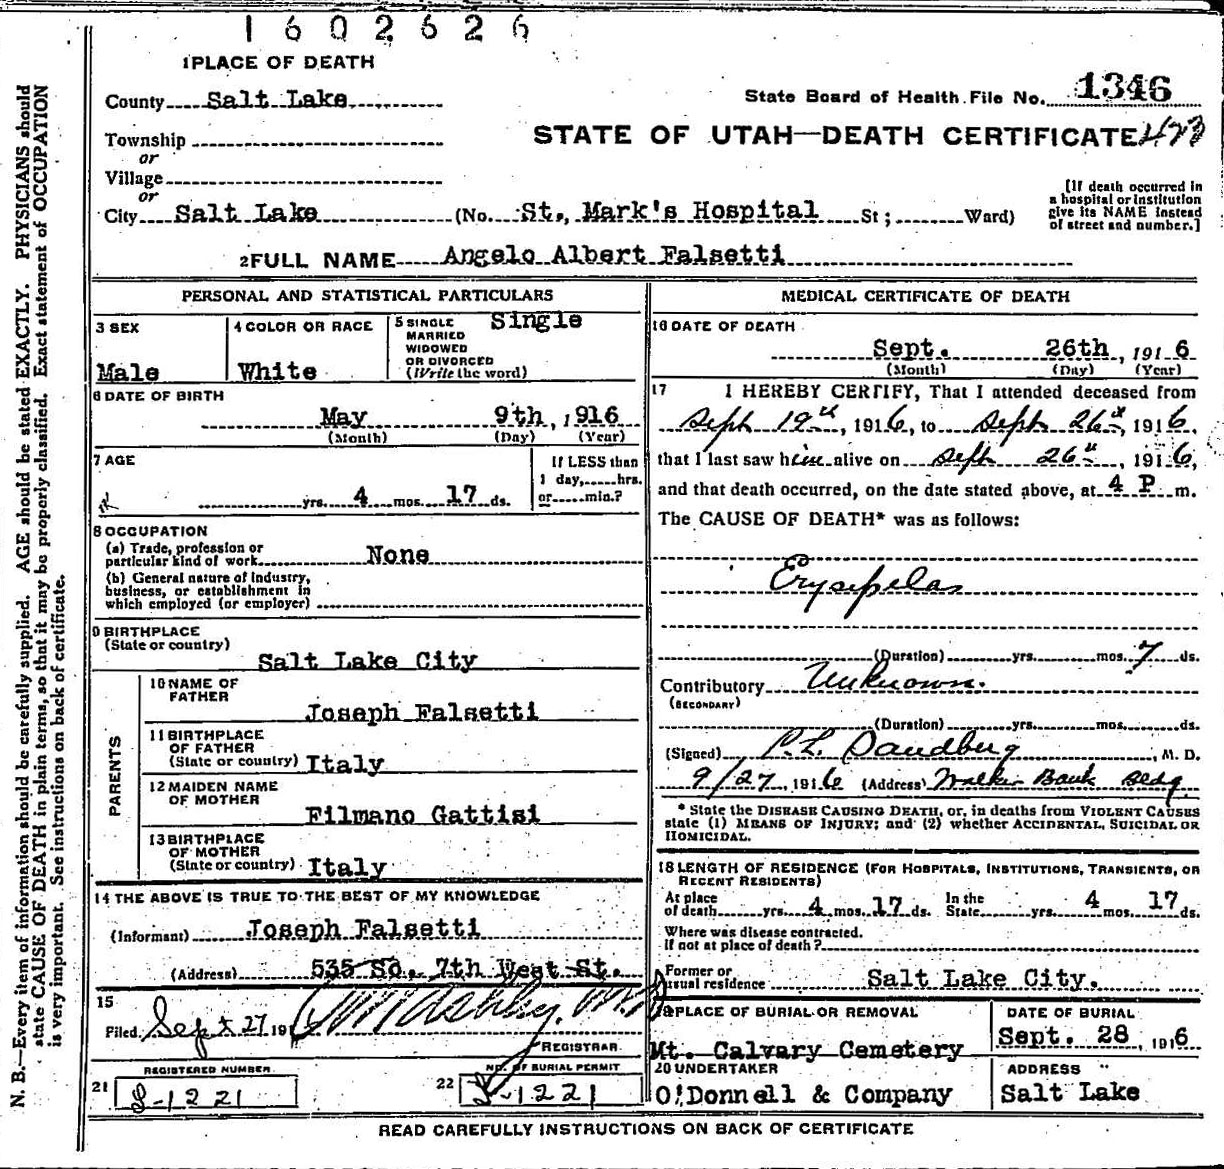 1602626
1 PLACE OF DEATH
County Salt Lake
State Board of Health File No. 1346
Township
or
STATE OF UTAH—DEATH CERTIFICATE 473
Village
or
City Salt Lake (No. St., Mark's Hospital St; Ward)
[If death occurred in
a hospital or institution
give its NAME instead
of street and number.]
2 FULL NAME Angelo Albert Falsetti
PERSONAL AND STATISTICAL PARTICULARS
3 SEX
Male
4 COLOR OR RACE
White
5 SINGLE Single
MARRIED
WIDOWED
OR DIVORCED
(Write the word)
6 DATE OF BIRTH
May 9th, 1916
(Month) (Day) (Year)
7 AGE
yrs. 4 mos. 17 ds.
If LESS than
1 day, hrs.
or min.?
8 OCCUPATION
(a) Trade, profession or
particular kind of work None
(b) General nature of industry,
business, or establishment in
which employed (or employer)
9 BIRTHPLACE
(State or country)
Salt Lake City
PARENTS
10 NAME OF
FATHER
Joseph Falsetti
11 BIRTHPLACE
OF FATHER
(State or country) Italy
12 MAIDEN NAME
OF MOTHER
Filmano Gattisi
13 BIRTHPLACE
OF MOTHER
(State or country) Italy
14 THE ABOVE IS TRUE TO THE BEST OF MY KNOWLEDGE
(Informant) Joseph Falsetti
(Address) 535 So. 7th West St.
15
Filed Sept 27 191
REGISTRAR
REGISTERED NUMBER
21 S-1221
NO. OF BURIAL PERMIT
22 S-1221
MEDICAL CERTIFICATE OF DEATH
16 DATE OF DEATH
Sept. 26th, 1916
(Month) (Day) (Year)
17 I HEREBY CERTIFY, That I attended deceased from
Sept 19th, 1916, to Sept 26th, 1916,
that I last saw him alive on Sept 26th, 1916,
and that death occurred, on the date stated above, at 4 P m.
The CAUSE OF DEATH* was as follows:
Erysipelas
(Duration) yrs. mos. 7 ds.
Contributory Unknown.
(SECONDARY)
(Duration) yrs. mos. ds.
(Signed) P. L. Sandberg, M. D.
9/27, 1916 (Address) Walker Bank Bldg.
* State the DISEASE CAUSING DEATH, or, in deaths from VIOLENT CAUSES
state (1) MEANS OF INJURY; and (2) whether ACCIDENTAL, SUICIDAL OR
HOMICIDAL.
18 LENGTH OF RESIDENCE (FOR HOSPITALS, INSTITUTIONS, TRANSIENTS, OR
RECENT RESIDENTS)
At place
of death yrs. 4 mos. 17 ds.
In the
State yrs. 4 mos. 17 ds.
Where was disease contracted.
if not at place of death?
Former or
usual residence Salt Lake City.
19 PLACE OF BURIAL OR REMOVAL
Mt. Calvary Cemetery
DATE OF BURIAL
Sept. 28, 1916
20 UNDERTAKER
O'Donnell & Company
ADDRESS
Salt Lake
READ CAREFULLY INSTRUCTIONS ON BACK OF CERTIFICATE
N. B.—Every item of information should be carefully supplied. AGE should be stated EXACTLY. PHYSICIANS should
state CAUSE OF DEATH in plain terms, so that it may be properly classified. Exact statement of OCCUPATION
is very important. See instructions on back of certificate.